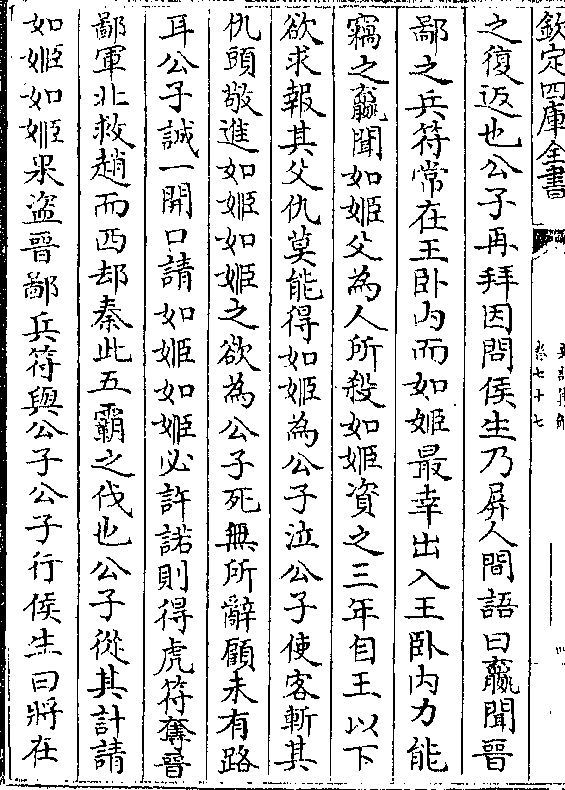 欽定四庫全書
卷七十七
之復返也公子再拜因問侯生乃屏人間語曰嬴聞晉
鄙之兵符常在王卧内而如姬最幸出入王卧内力能
竊之嬴聞如姬父為人所殺如姬資之三年自王以下
欲求報其父仇莫能得如姬為公子泣公子使客斬其
仇頭敬進如姬如姬之欲為公子死無所辭顧未有路
耳公子誠一開口請如姬如姬必許諾則得虎符奪晉
鄙軍北救趙而西却秦此五霸之伐也公子從其計請
如姬如姬果盜晉鄙兵符與公子公子行侯生曰將在